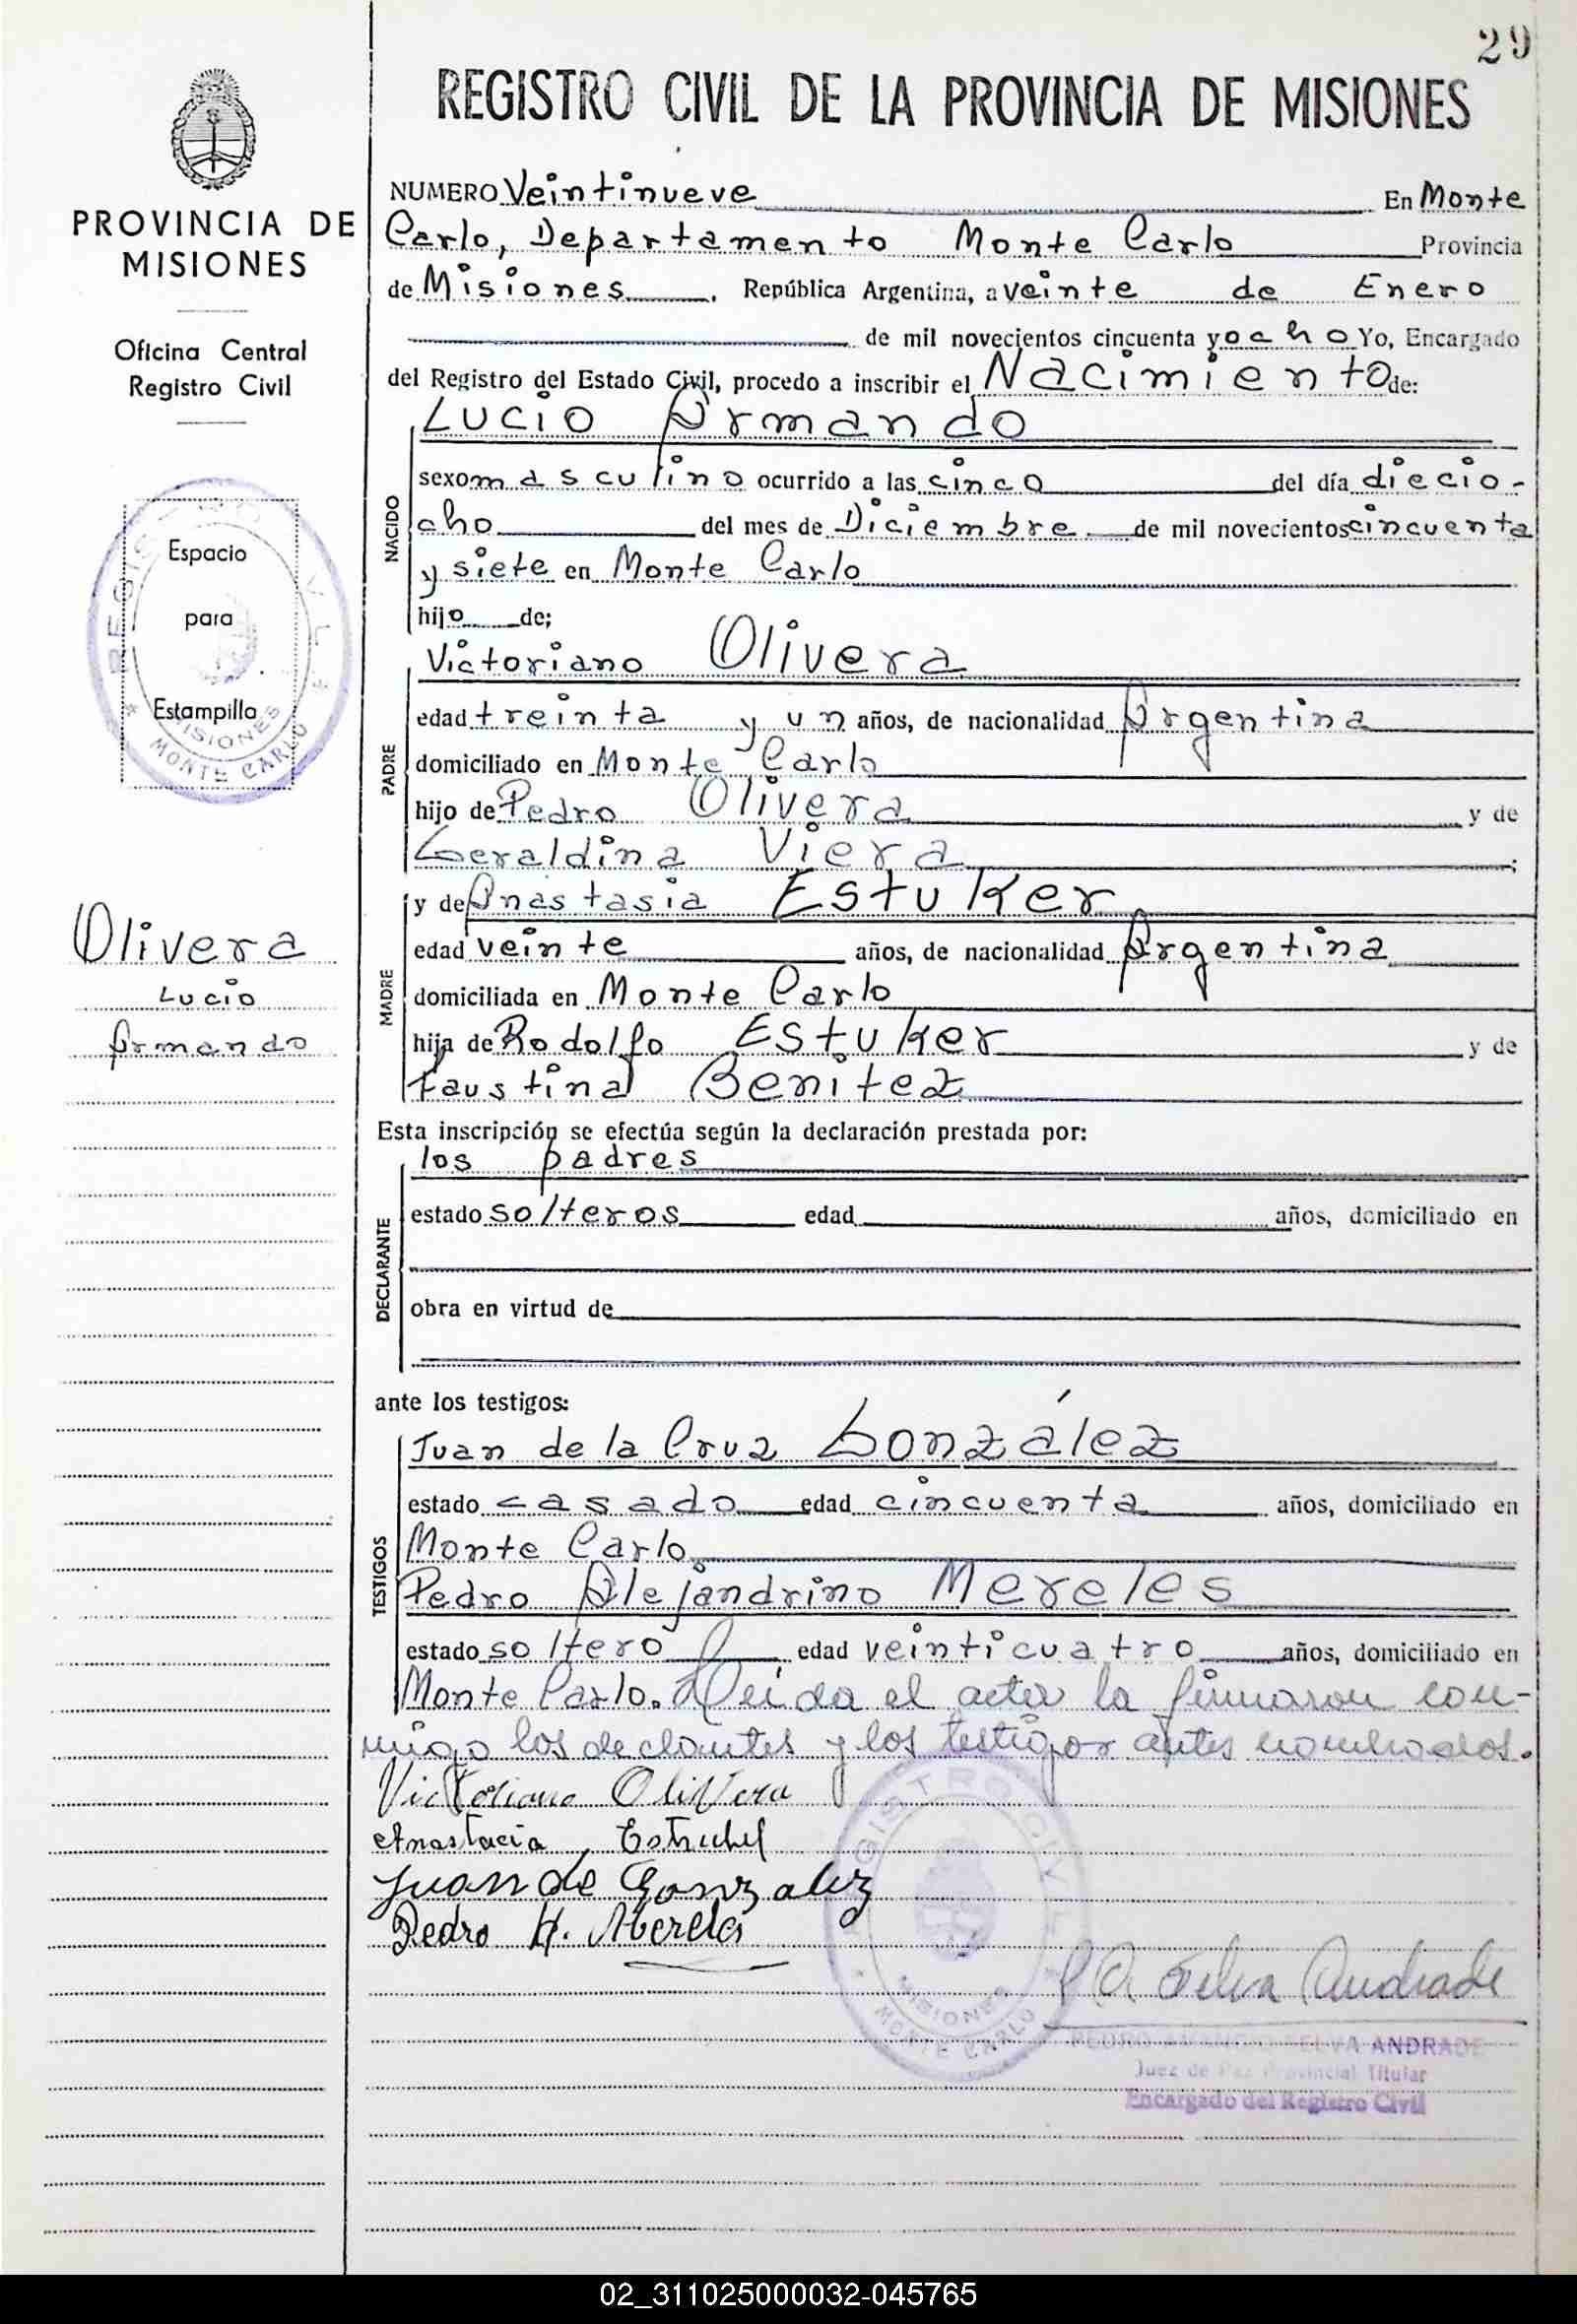 29
REGISTRO CIVIL DE LA PROVINCIA DE MISIONES
PROVINCIA DE
MISIONES
Oficina Central
Registro Civil
REGISTRO CIVIL
Espacio
para
Estampilla
MISIONES
* MONTE CARLO *
Olivera
Lucio
Armando
NUMERO Veintinueve En Monte
Carlo, Departamento Monte Carlo Provincia
de Misiones, República Argentina, a veinte de Enero
de mil novecientos cincuenta y ocho Yo, Encargado
del Registro del Estado Civil, procedo a inscribir el Nacimiento de:
NACIDO
Lucio Armando
sexo masculino ocurrido a las cinco del día diecio-
cho del mes de Diciembre de mil novecientos cincuenta
y siete en Monte Carlo
hijo de;
PADRE
Victoriano Olivera
edad treinta y un años, de nacionalidad Argentina
domiciliado en Monte Carlo
hijo de Pedro Olivera y de
Geraldina Viera;
MADRE
y de Anastasia Estuker
edad veinte años, de nacionalidad Argentina
domiciliada en Monte Carlo
hija de Rodolfo Estuker y de
Faustina Benitez
Esta inscripción se efectúa según la declaración prestada por:
DECLARANTE
los padres
estado solteros edad años, domiciliado en
obra en virtud de
ante los testigos:
TESTIGOS
Juan de la Cruz González
estado casado edad cincuenta años, domiciliado en
Monte Carlo
Pedro Alejandrino Mereles
estado soltero edad veinticuatro años, domiciliado en
Monte Carlo. Leída el acta la firmaron con-
migo los declantes y los testigos antes nombrados.
Victoriano Olivera
Anastacia
Juan de Gonzalez
Pedro A. Mereles
REGISTRO CIVIL
MISIONES
* MONTE CARLO *
P. A. Selva Andrade
PEDRO SELVA ANDRADE
Juez de Paz Provincial Titular
Encargado del Registro Civil
02_311025000032-045765